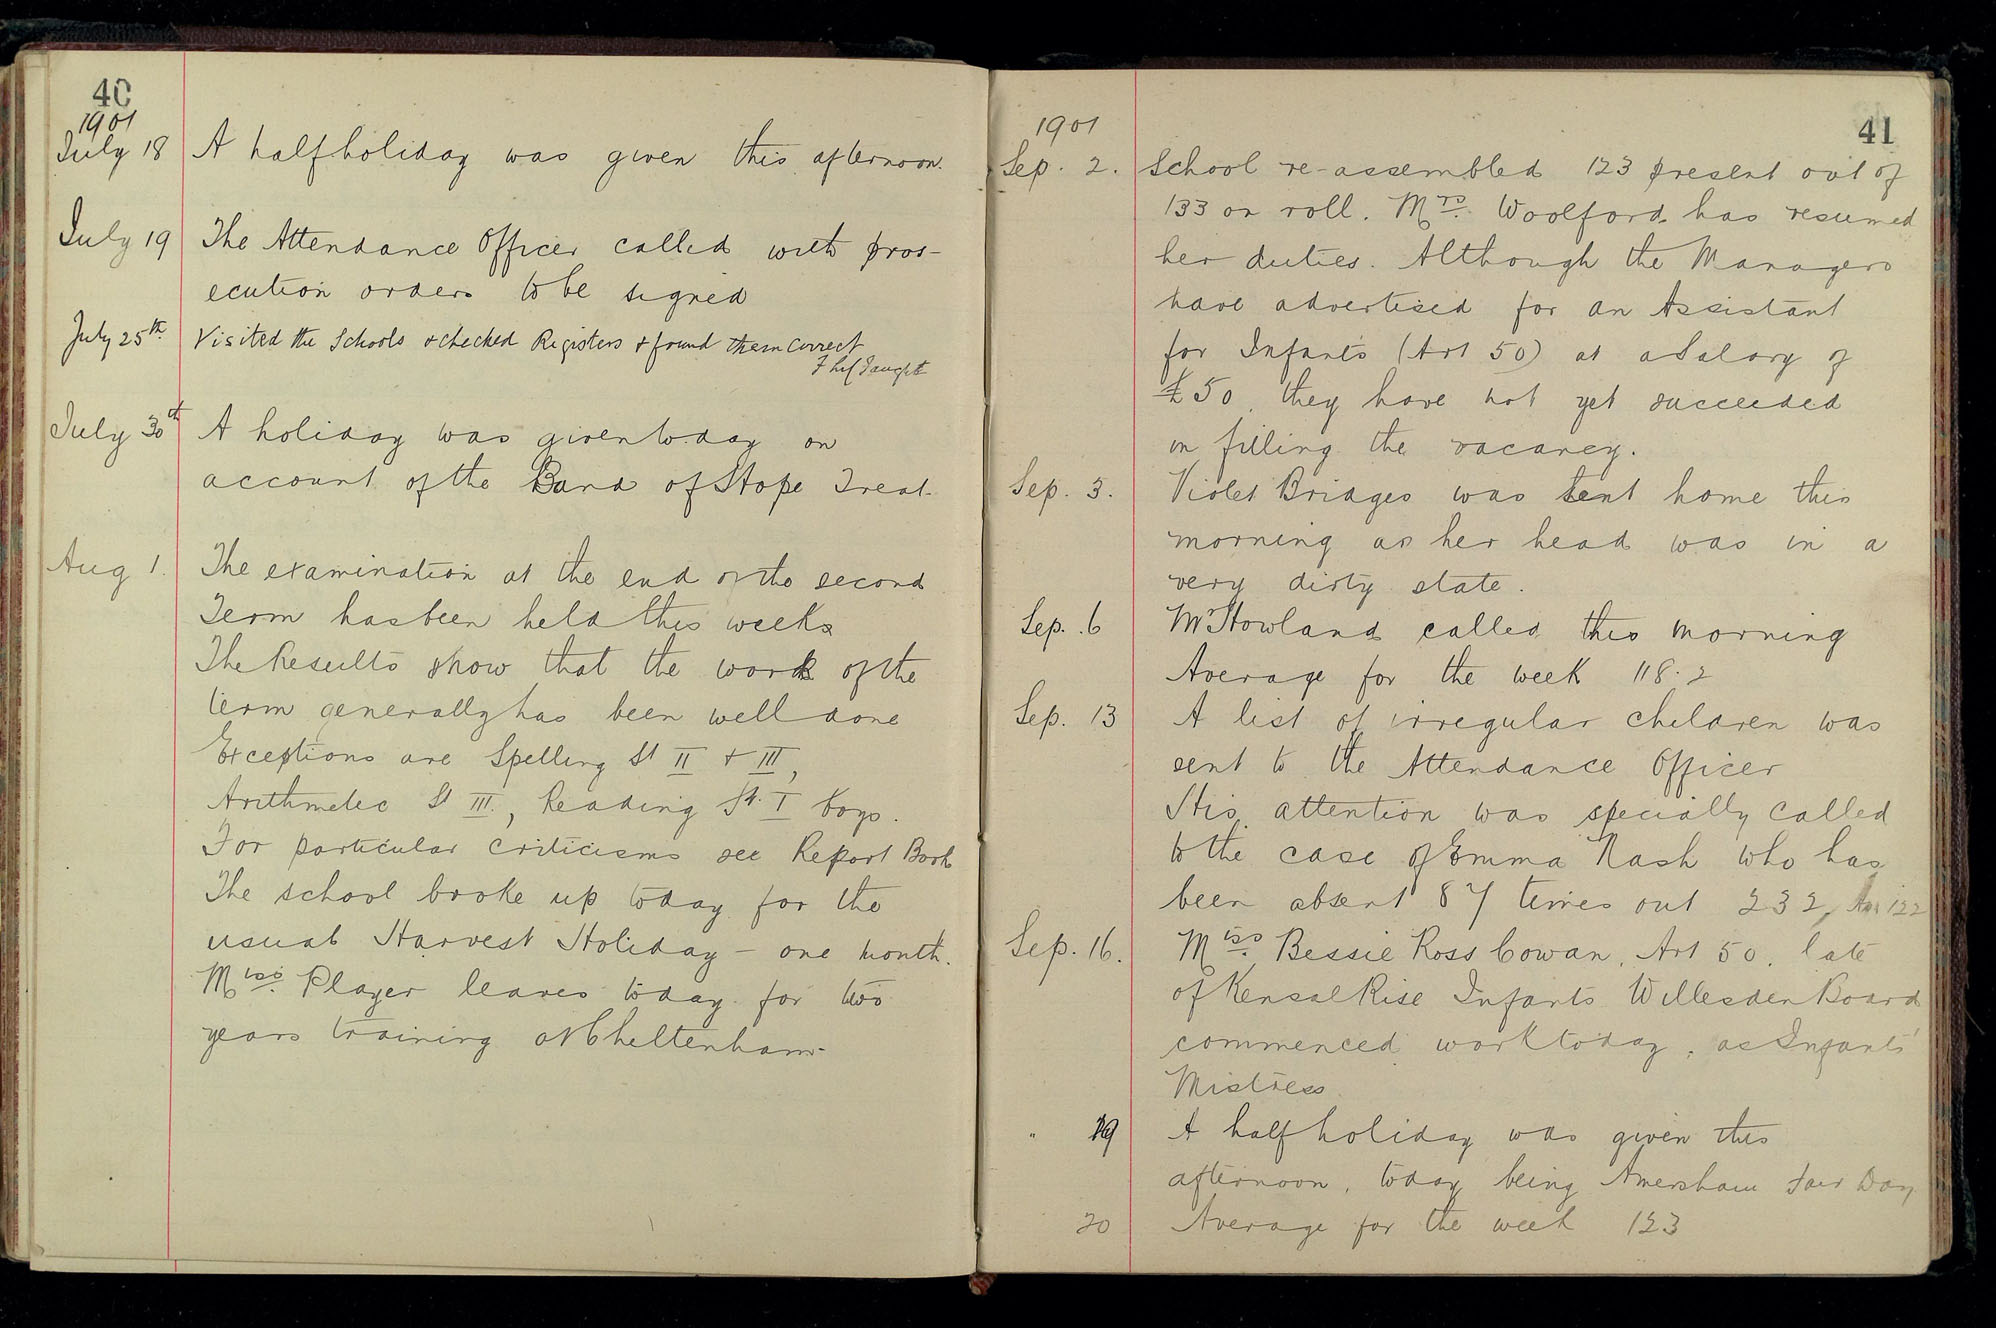 40
1901
July 18 A half holiday was given this afternoon.
July 19 The Attendance Officer called with pros-
ecution orders to be signed
July 25th. Visited the Schools & checked Registers & found them correct
July 30th A holiday was given today on
account of the Band of Hope Treat.
Aug 1. The examination at the end of the second
Term has been held this week
The Results show that the work of the
term generally has been well done
Exceptions are Spelling St II & III,
Arithmetic St III, Reading St. I boys.
For particular criticisms see Report Book
The school broke up today for the
usual Harvest Holiday – one month.
Miss Player leaves today for two
years training at Cheltenham.
41
1901
Sep. 2. School re-assembled 123 present out of
133 on roll. Mrs. Woolford has resumed
her duties. Although the Managers
have advertised for an Assistant
for Infants (Art 50) at a Salary of
£50, they have not yet succeeded
in filling the vacancy.
Sep. 3. Violet Bridges was sent home this
morning as her head was in a
very dirty state.
Sep. 6 Mr Howland called this morning
Average for the week 118.2
Sep. 13 A list of irregular children was
sent to the Attendance Officer
His attention was specially called
to the case of Emma Nash who has
been absent 87 times out 232, 122
Sep. 16. Miss. Bessie Ross Cowan, Art 50, late
of Kensal Rise Infants Willesden Board
commenced work today, as Infants'
Mistress
" 19 A half holiday was given this
afternoon, today being Amersham Fair Day
20 Average for the week 123